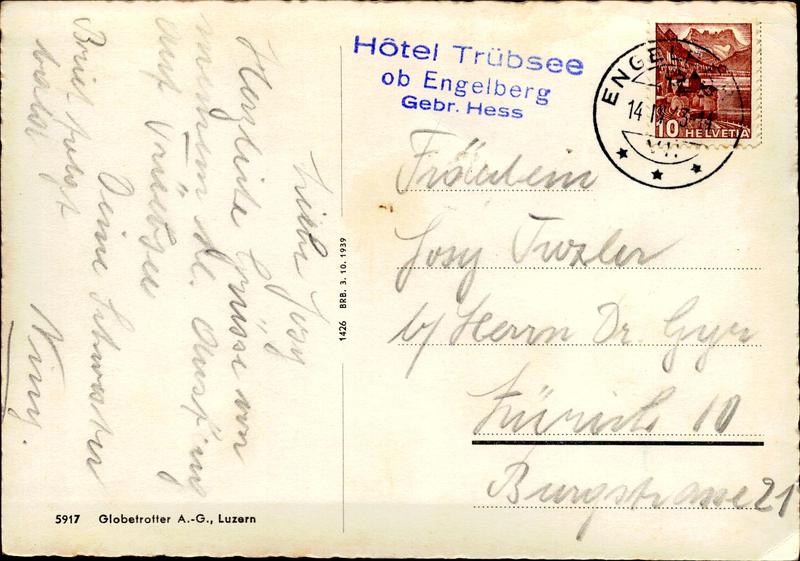 Liebe Josy
Herzliche Grüsse von
meinem
auf Trübsee
Brief folgt
bald
Deine Schwester
Hôtel Trübsee
ob Engelberg
Gebr. Hess
ENGELBERG
14
10 HELVETIA
Fräulein
Josy
b/ Herrn Dr. Gyr
Zürich 10
Burgstrasse 21
1426 BRB. 3. 10. 1939
5917 Globetrotter A.-G., Luzern